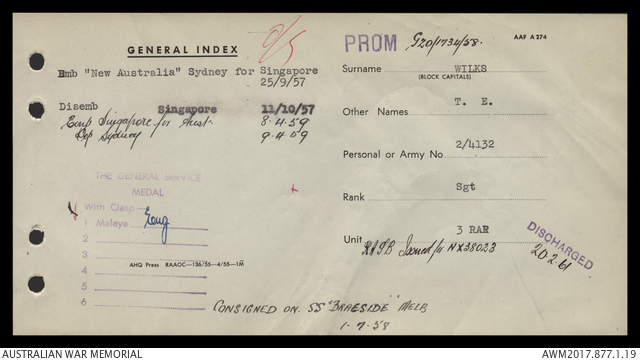 GENERAL INDEX
Emb "New Australia" Sydney for Singapore
25/9/57
Disemb Singapore 11/10/57
Emb Singapore for Aust. 8.4.59
Dep Sydney 9.4.59
THE GENERAL SERVICE
MEDAL
With Clasp
1 Malaya
2
3
AHQ Press RAAOC—136/55—4/55—1M
4
5
6
PROM G20/1734/58. AAF A 274
Surname WILKS
(BLOCK CAPITALS)
Other Names T. E.
Personal or Army No 2/4132
Rank Sgt
Unit 3 RAR
NX38023
DISCHARGED
20.2.61
CONSIGNED ON SS "BRAESIDE" MELB
1.7.58
AUSTRALIAN WAR MEMORIAL
AWM2017.877.1.19